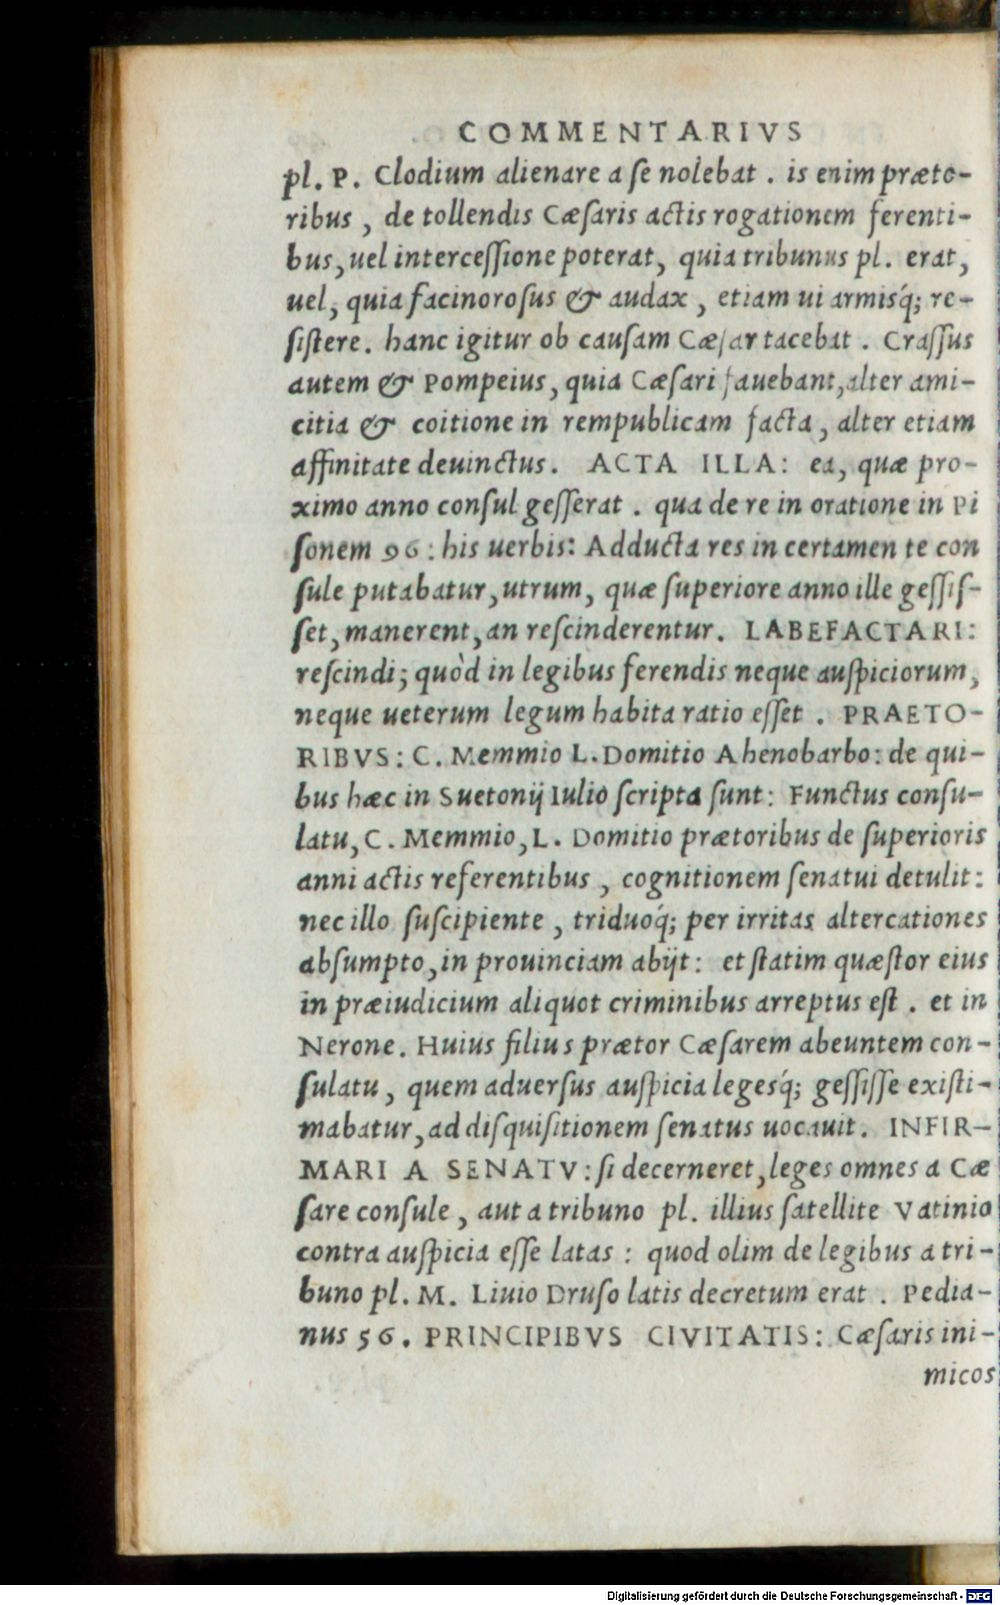 COMMENTARIVS
pl. P. Clodium alienare a se nolebat. is enim præto-
ribus, de tollendis Cæsaris actis rogationem ferenti-
bus, uel intercessione poterat, quia tribunus pl. erat,
uel, quia facinorosus & audax, etiam ui armisq́; re-
sistere. hanc igitur ob causam Cæsar tacebat. Crassus
autem & Pompeius, quia Cæsari fauebant, alter ami-
citia & coitione in rempublicam facta, alter etiam
affinitate deuinctus. ACTA ILLA: ea, quæ pro-
ximo anno consul gesserat. qua de re in oratione in Pi
sonem 96: his uerbis: Adducta res in certamen te con
sule putabatur, utrum, quæ superiore anno ille gessis-
set, manerent, an rescinderentur. LABEFACTARI:
rescindi; quòd in legibus ferendis neque auspiciorum,
neque ueterum legum habita ratio esset. PRAETO-
RIBVS: C. Memmio L. Domitio Ahenobarbo: de qui-
bus hæc in Suetonij Iulio scripta sunt: Functus consu-
latu, C. Memmio, L. Domitio prætoribus de superioris
anni actis referentibus, cognitionem senatui detulit:
nec illo suscipiente, triduoq́; per irritas altercationes
absumpto, in prouinciam abijt: et statim quæstor eius
in præiudicium aliquot criminibus arreptus est. et in
Nerone. Huius filius prætor Cæsarem abeuntem con-
sulatu, quem aduersus auspicia legesq́; gessisse existi-
mabatur, ad disquisitionem senatus uocauit. INFIR-
MARI A SENATV: si decerneret, leges omnes a Cæ
sare consule, aut a tribuno pl. illius satellite Vatinio
contra auspicia esse latas: quod olim de legibus a tri-
buno pl. M. Liuio Druso latis decretum erat. Pedia-
nus 56. PRINCIPIBVS CIVITATIS: Cæsaris ini-
micos
Digitalisierung gefördert durch die Deutsche Forschungsgemeinschaft - DFG